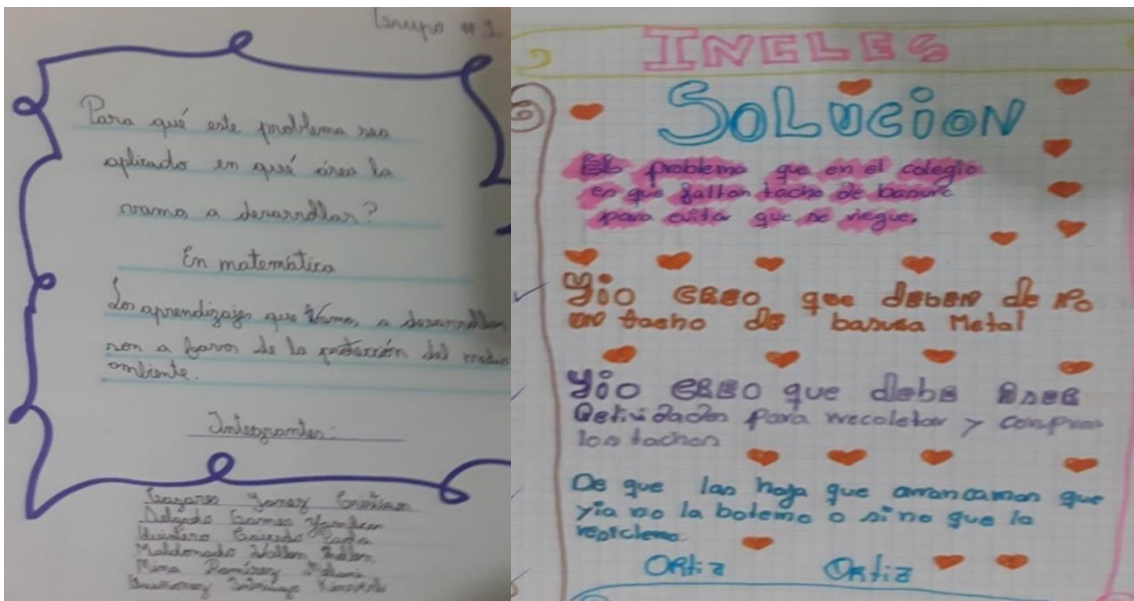 Grupo #1
Para qué este problema sea
aplicado en qué área la
vamo a desarrollar?
En matemática
Los aprendizajes que Vamos a desarrollar
son a favor de la protección del medio
ambiente.
Integrantes:
Yamez Cristian
Delgado
Quintero Caicedo
Maldonado
Mina Ramírez
Quiñonez
INGLES
SOLUCION
El problema que en el colegio
en que faltan tacho de basura
para evitar que se riegue.
Yio CREO que deben de
un tacho de basura Metal
Yio CREO que debe
Actividades para rrecoletar y
los tachos
De que las hoja que arrancamos que
yia no la botemo o si no que la
Ortiz Ortiz